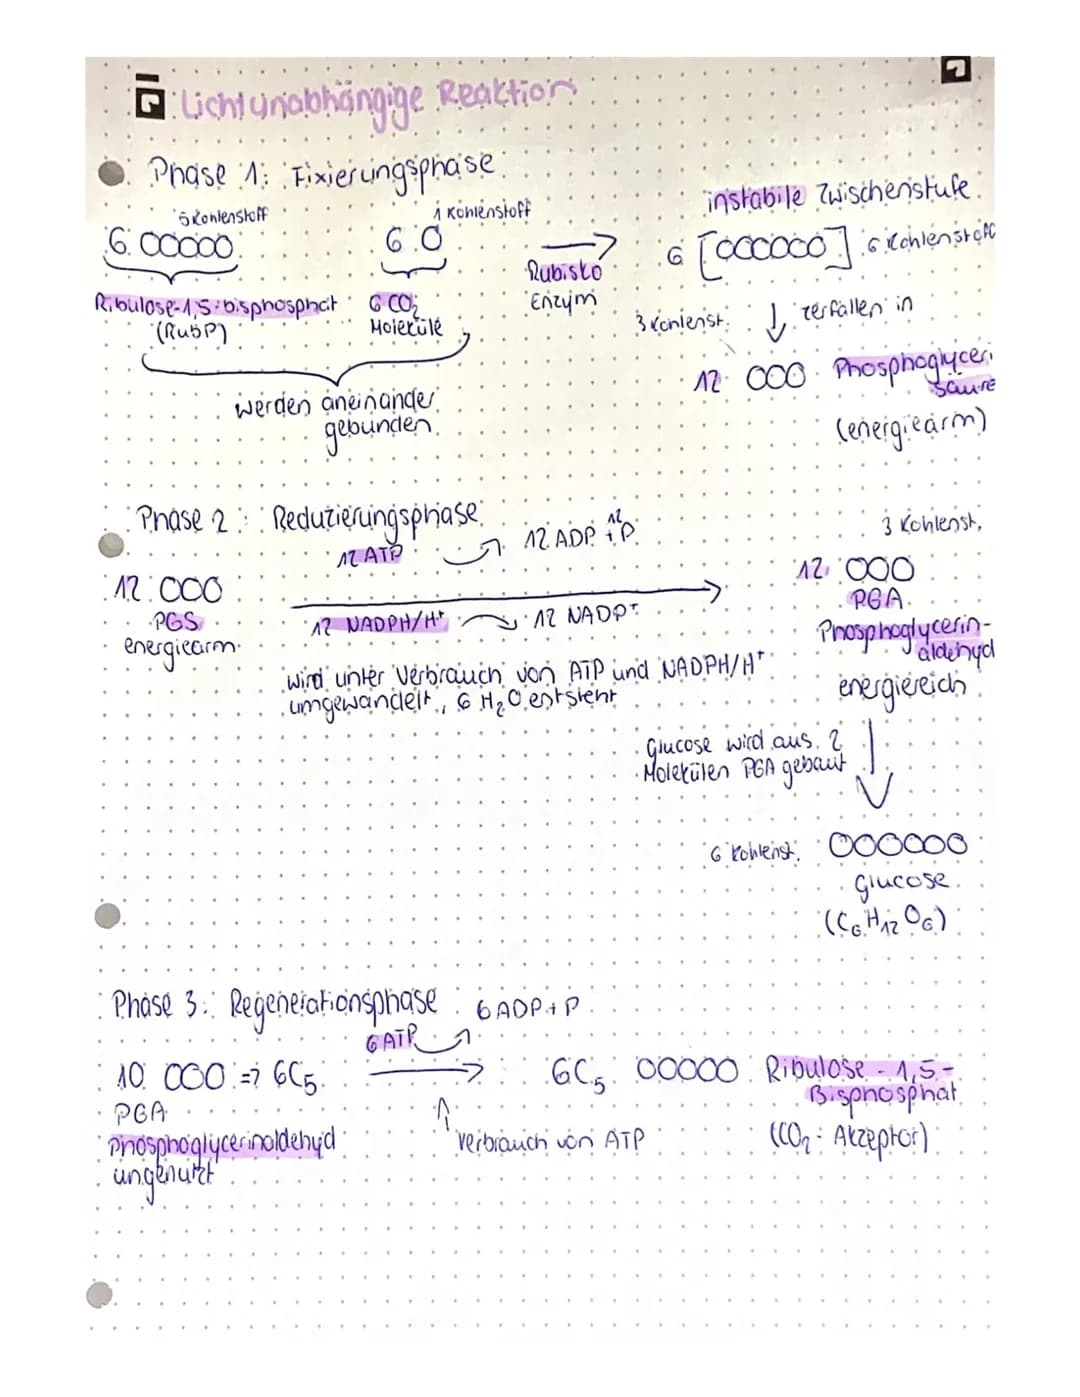 Lichtunabhängige Reaktion
Phase 1: Fixierungsphase
5 Kohlenstoff
6 OOOOO
Ribulose-1,5-bisphosphat
(Ru5P)
1 Kohlenstoff
6 O
6 CO2
Moleküle
werden aneinander
gebunden
Rubisko
Enzym
instabile Zwischenstufe
6 [OOOOOO] 6 Kohlenstoff
3 Kohlenst.
zerfallen in
12 OOO Phosphoglycerin
säure
(energiearm)
Phase 2: Reduzierungsphase
12 ATP
12 ADP + 12 P
12 OOO
PGS
energiearm
12 NADPH/H+
12 NADP+
wird unter Verbrauch von ATP und NADPH/H+
umgewandelt, 6 H2O entsteht
3 Kohlenst.
12 OOO
PGA
Phosphoglycerin-
aldehyd
energiereich
Glucose wird aus 2
Molekülen PGA gebaut
6 Kohlenst. OOOOOO
Glucose
(C6H12O6)
Phase 3: Regenerationsphase
6 ADP + P
6 ATP
10 OOO => 6C5
PGA
Phosphoglycerinaldehyd
ungenutzt
Verbrauch von ATP
6C5 OOOOO Ribulose-1,5-
Bisphosphat
(CO2-Akzeptor)